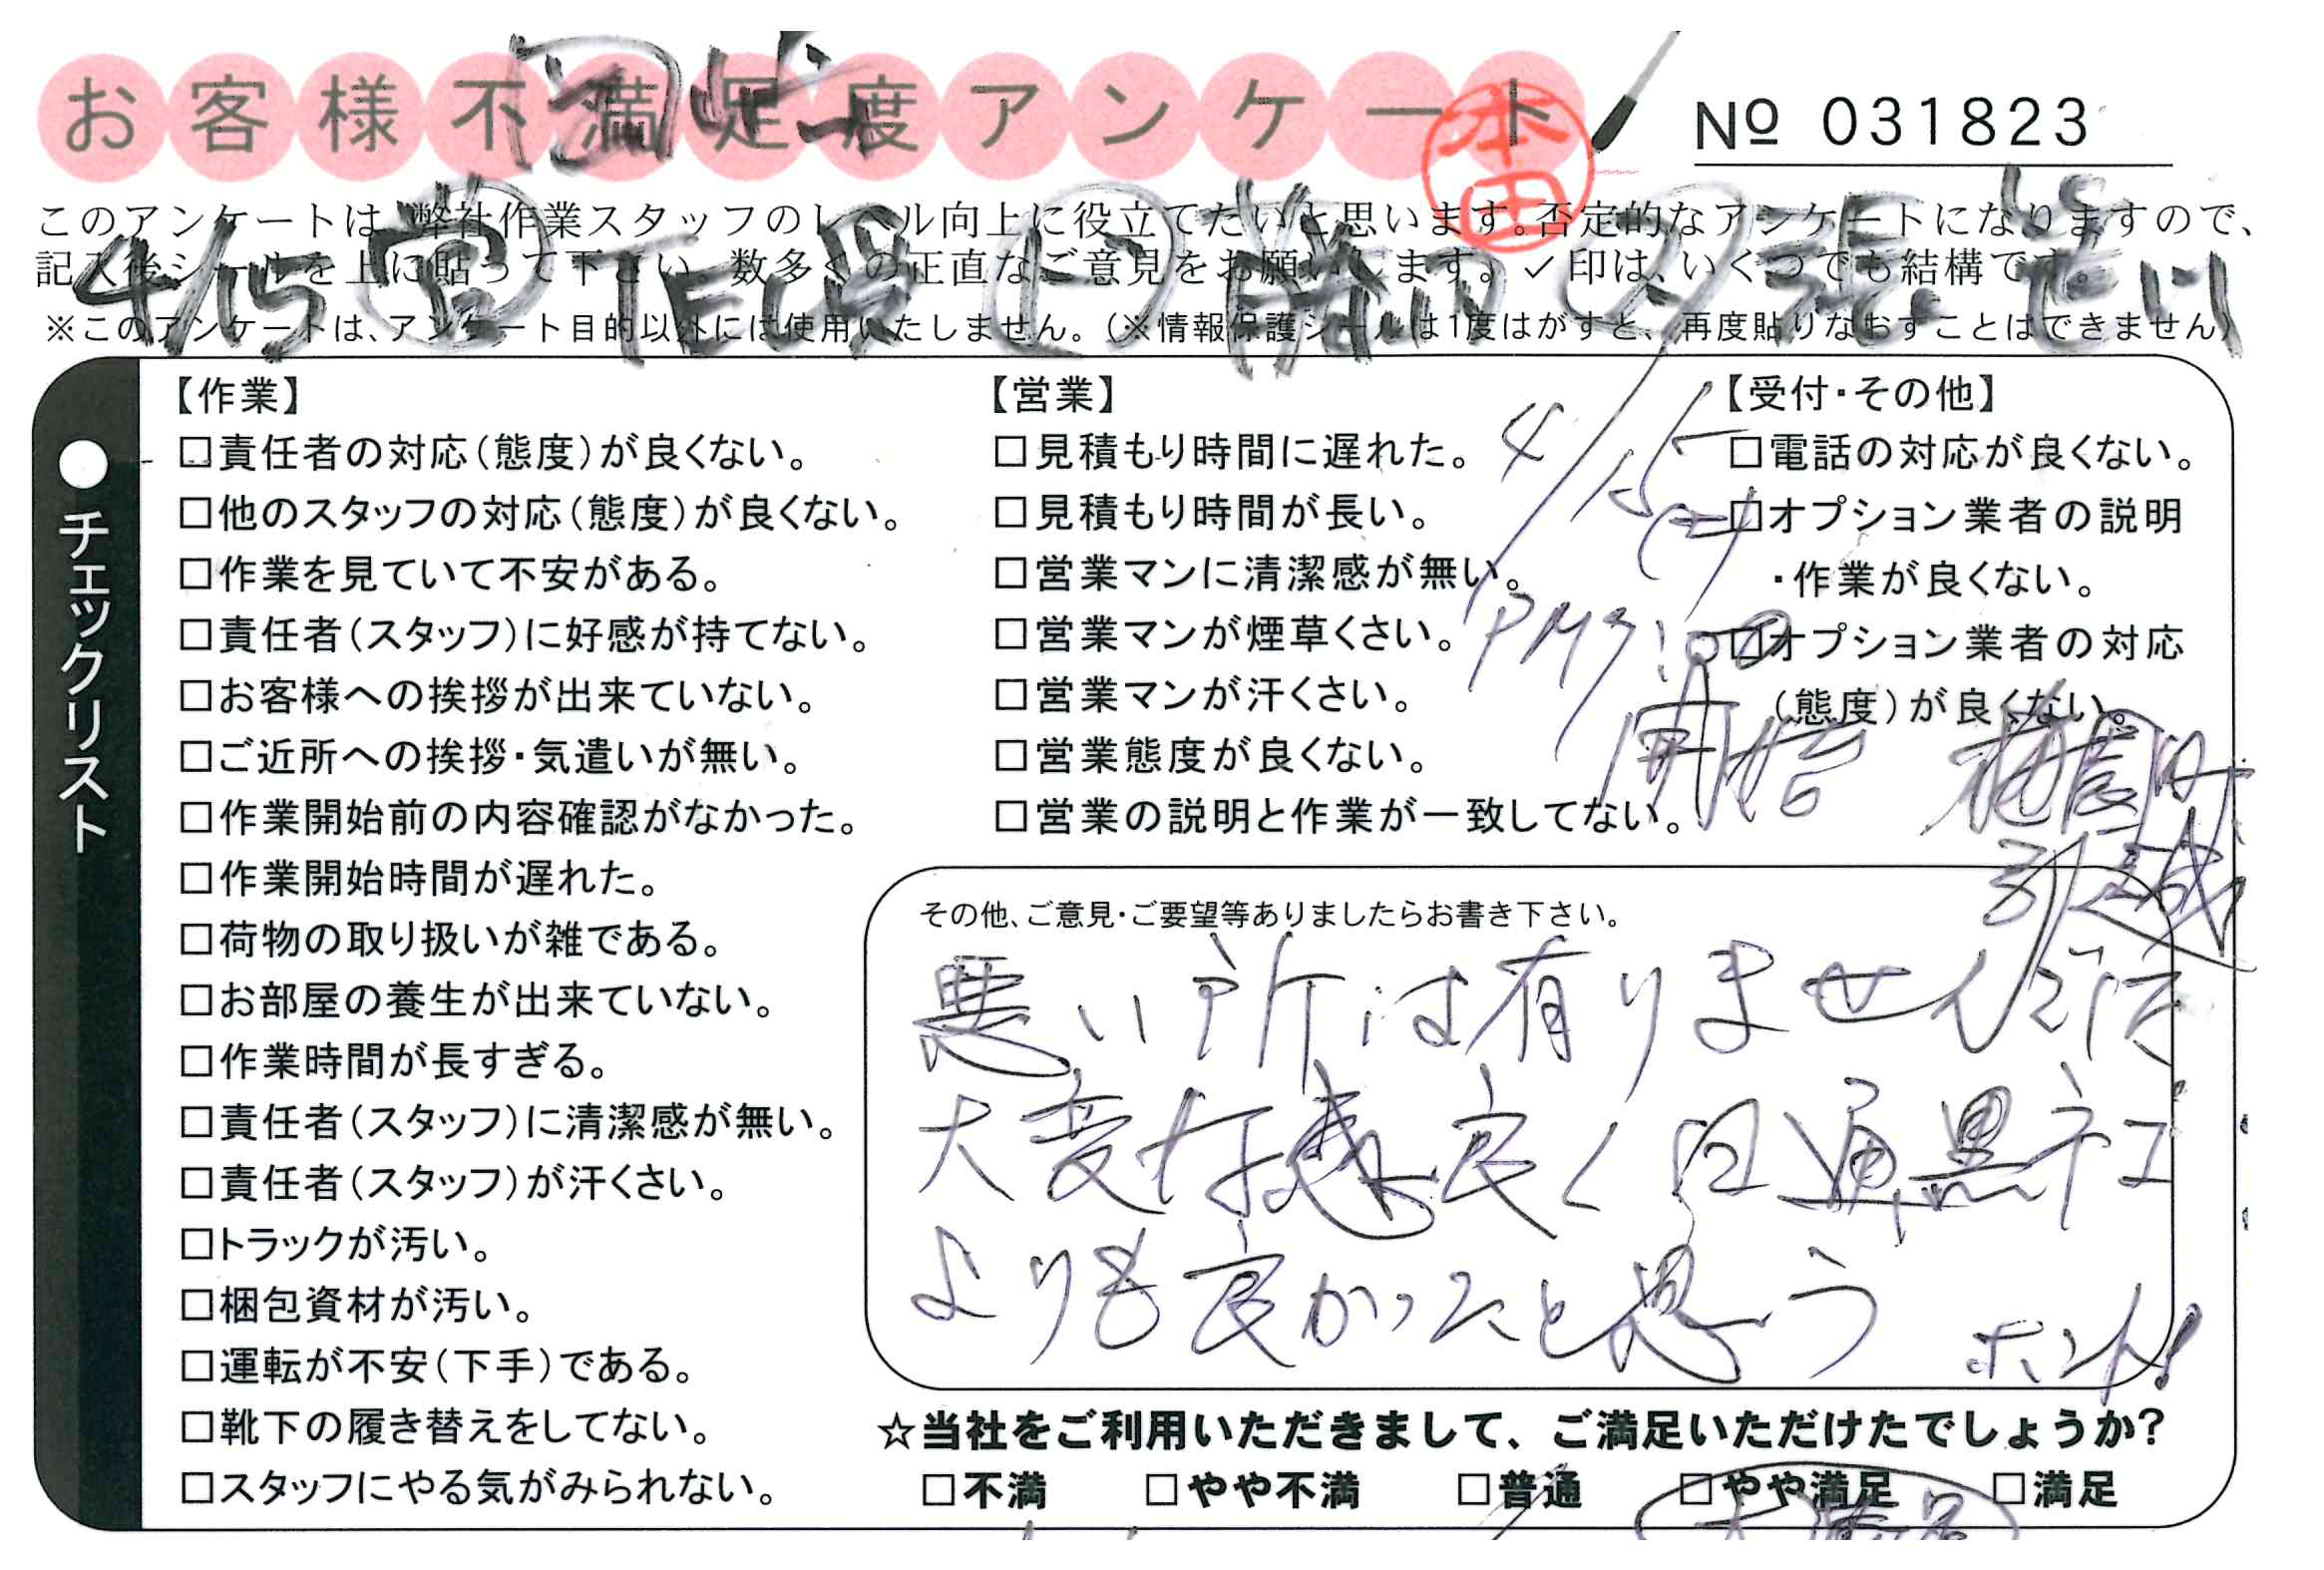 お客様不満足度アンケート
本田
№ 031823
このアンケートは、弊社作業スタッフのレベル向上に役立てたいと思います。否定的なアンケートになりますので、
記入後シールを上に貼って下さい。数多くの正直なご意見をお願いします。✓印は、いくつでも結構です。
※このアンケートは、アンケート目的以外には使用いたしません。(※情報保護シールは1度はがすと、再度貼りなおすことはできません)
4/15 TEL受
●チェックリスト
【作業】
□責任者の対応(態度)が良くない。
□他のスタッフの対応(態度)が良くない。
□作業を見ていて不安がある。
□責任者(スタッフ)に好感が持てない。
□お客様への挨拶が出来ていない。
□ご近所への挨拶・気遣いが無い。
□作業開始前の内容確認がなかった。
□作業開始時間が遅れた。
□荷物の取り扱いが雑である。
□お部屋の養生が出来ていない。
□作業時間が長すぎる。
□責任者(スタッフ)に清潔感が無い。
□責任者(スタッフ)が汗くさい。
□トラックが汚い。
□梱包資材が汚い。
□運転が不安(下手)である。
□靴下の履き替えをしてない。
□スタッフにやる気がみられない。
【営業】
□見積もり時間に遅れた。
□見積もり時間が長い。
□営業マンに清潔感が無い。
□営業マンが煙草くさい。
□営業マンが汗くさい。
□営業態度が良くない。
□営業の説明と作業が一致してない。
【受付・その他】
□電話の対応が良くない。
□オプション業者の説明
・作業が良くない。
□オプション業者の対応
(態度)が良くない。
4/15
PM3:00
開始
引越
その他、ご意見・ご要望等ありましたらお書き下さい。
悪い所は有りませんでした
大変な感良く日通黒ネコ
よりも良かったと思う
ホント!
☆当社をご利用いただきまして、ご満足いただけたでしょうか?
□不満 □やや不満 □普通 □やや満足 □満足
大満足